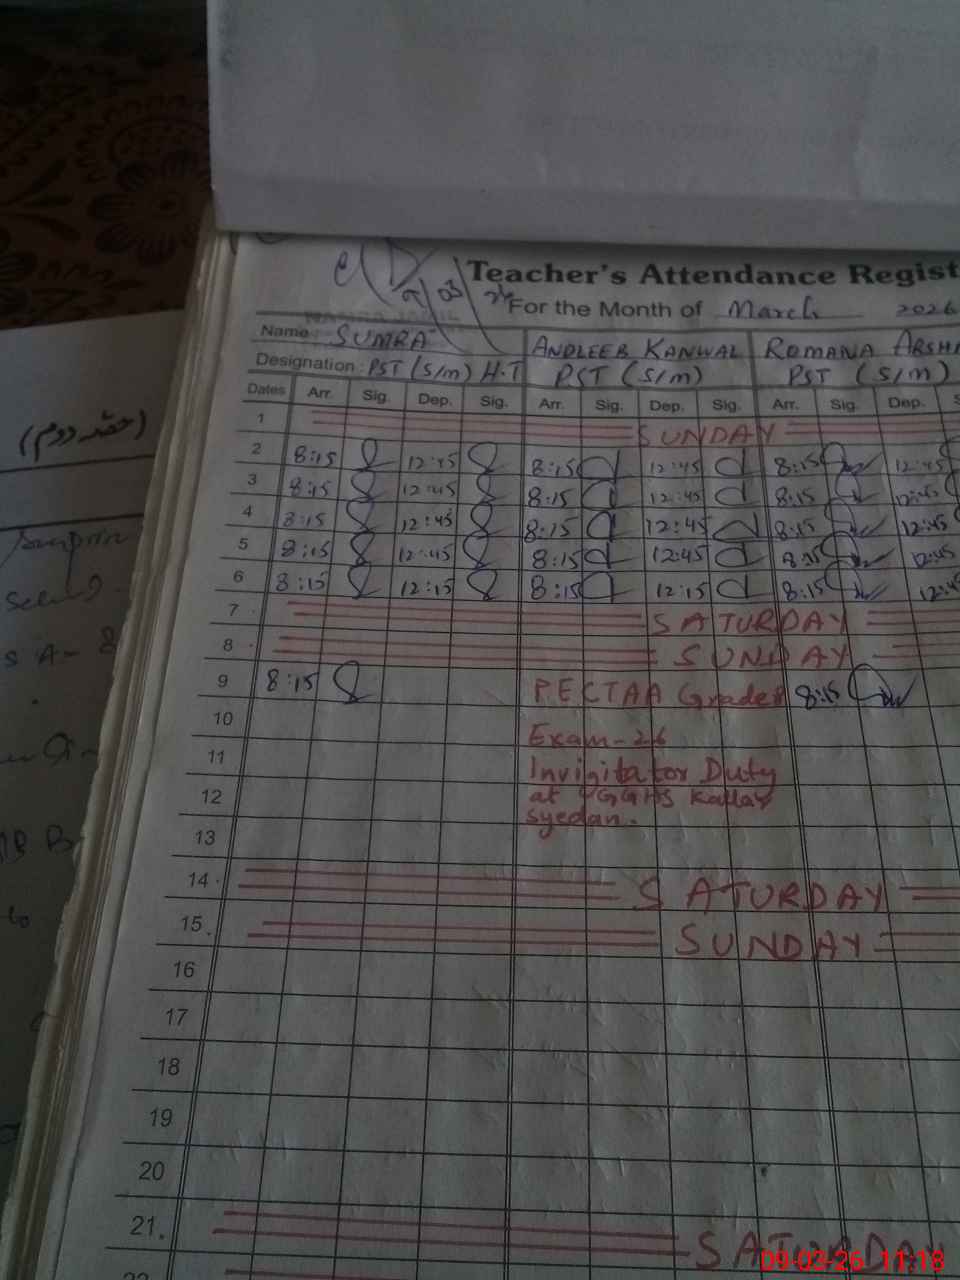 Teacher's Attendance Regist
For the Month of March 2026
Name: SUMRA ANDLEEB KANWAL ROMANA ARSH
Designation: PST (S/m) H.T PST (S/m) PST (S/m)
Dates Arr. Sig. Dep. Sig. Arr. Sig. Dep. Sig. Arr. Sig. Dep. S
1 SUNDAY
2 8:15 12:45 8:15 12:45 8:15 12:45
3 8:15 12:45 8:15 12:45 8:15 12:45
4 8:15 12:45 8:15 12:45 8:15 12:45
5 8:15 12:45 8:15 12:45 8:15 12:45
6 8:15 12:15 8:15 12:15 8:15
7 SATURDAY
8 SUNDAY
9 8:15 PECTAA Grades 8:15
10 Exam-26
11 Invigitator Duty
12 at GGHS Kallar
syedan.
13
14 SATURDAY
15 SUNDAY
16
17
18
19
20
21 SATURDAY
(حصہ دوم)
09-03-26 11:18